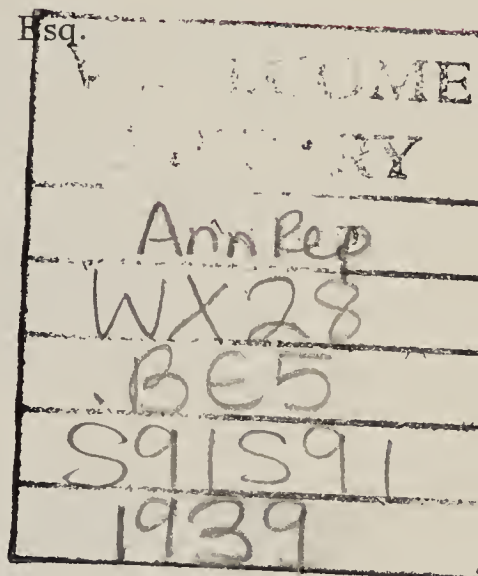 Esq.
Ann Rep
WX28
BE5
S91S91
1939